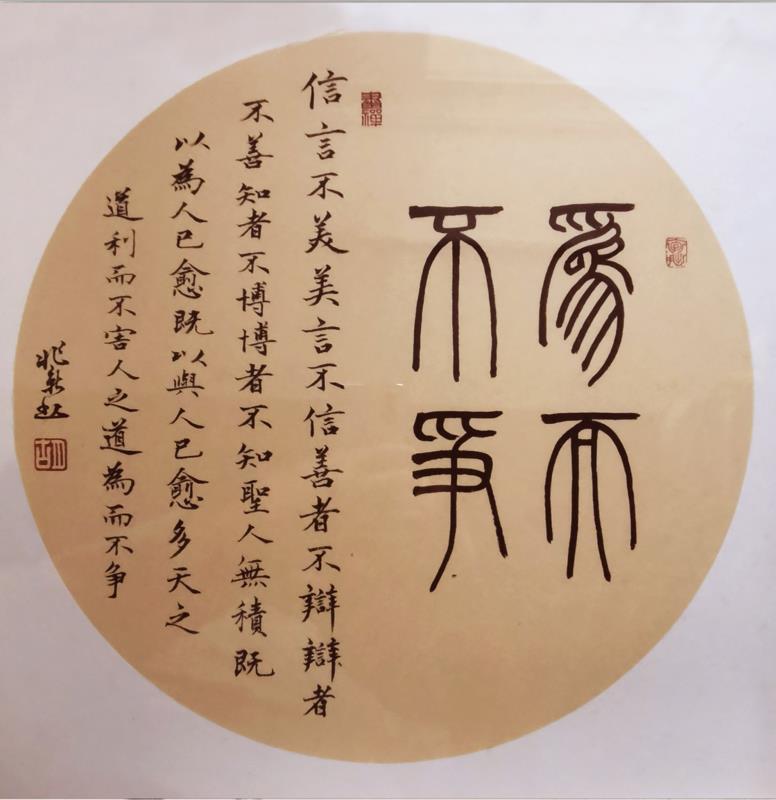 爲而
不爭
書禪
信言不美美言不信善者不辯辯者
不善知者不博博者不知聖人無積既
以為人已愈既以與人已愈多天之
道利而不害人之道為而不争